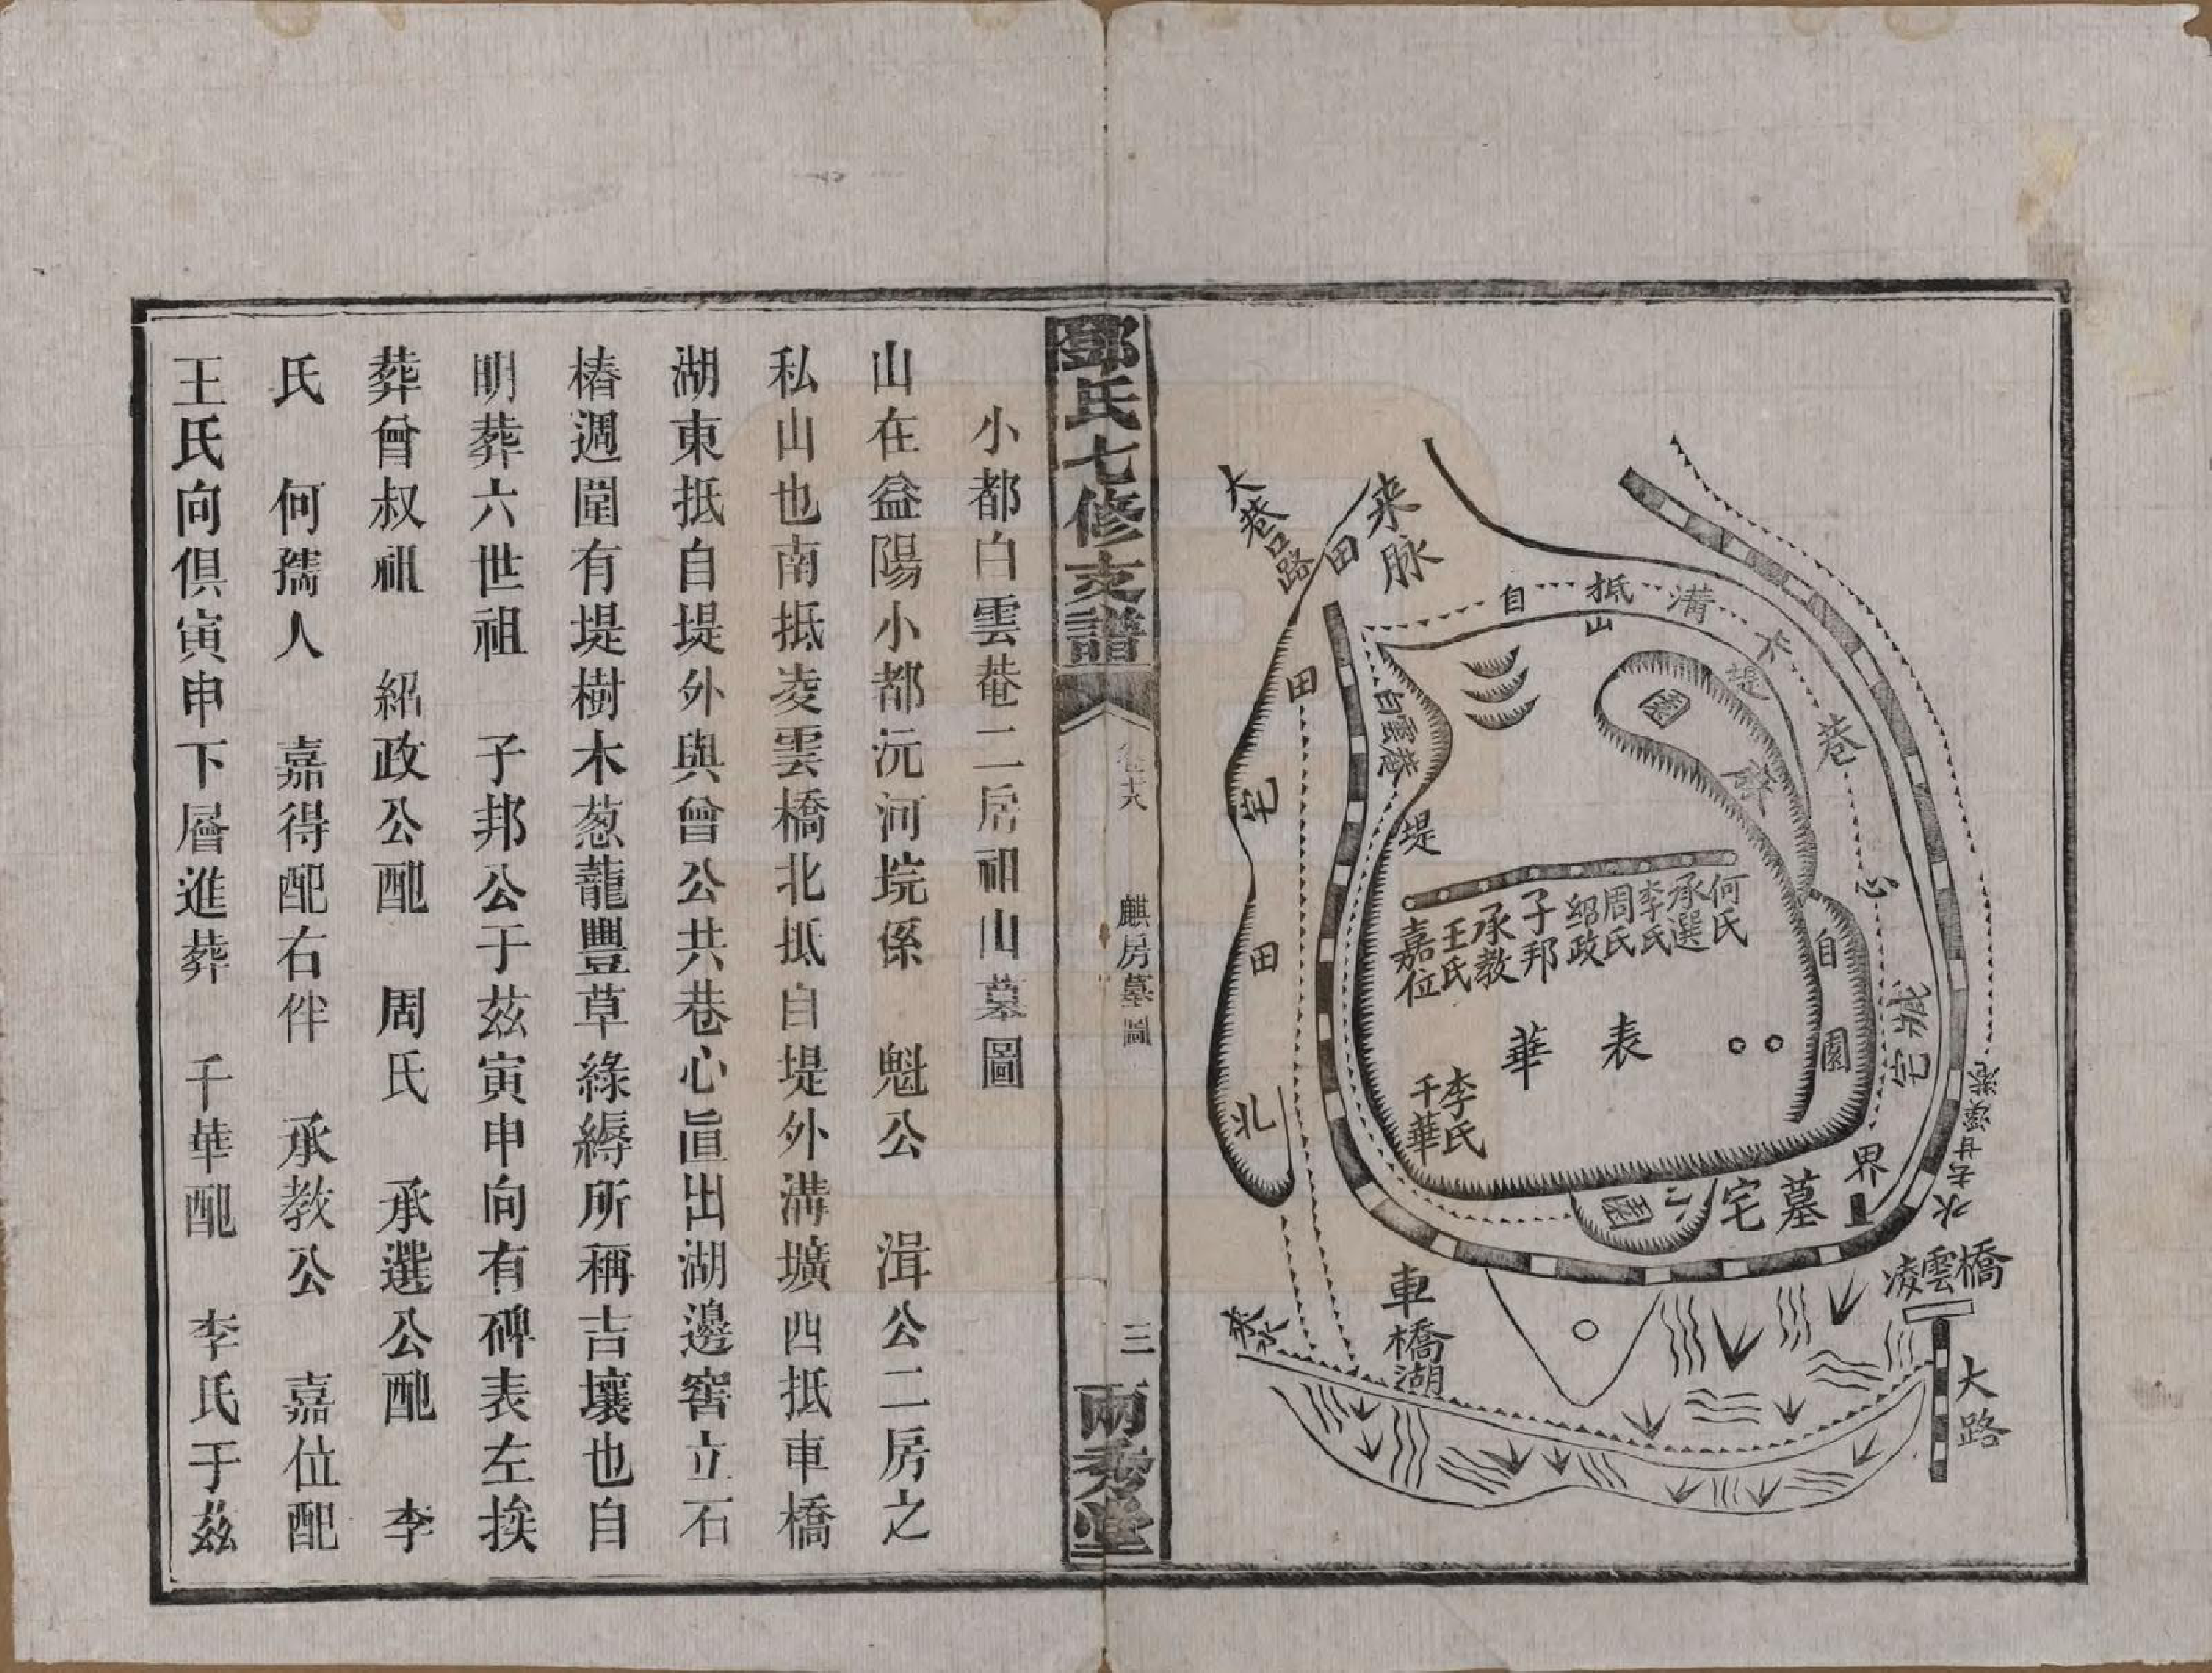 大巷口路
田
来脉
田
宅
田
北
自
抵
山
溝
卡
堤
巷
心
白雲菴
堤
園
自
園
何氏
承選
李氏
周氏
紹政
子邦
承教
王氏
嘉位
表
華
李氏
千華
宅
界
墓
宅
園
凌雲橋
大路
車橋湖
鄧氏七修支譜
卷十八
麒房墓圖
三
兩秀堂
小都白雲菴二居祖山墓圖
山在益陽小都沅河垸係 魁公 湒公二房之
私山也南抵凌雲橋北抵自堤外溝壙西抵車橋
湖東抵自堤外與曾公共巷心直出湖邊窖立石
樁週圍有堤樹木葱蘢豐草綠縟所稱吉壤也自
明葬六世祖 子邦公于茲寅申向有碑表左挨
葬曾叔祖 紹政公配 周氏 承選公配 李
氏 何孺人 嘉得配右伴 承教公 嘉位配
王氏向俱寅申下層進葬 千華配 李氏于茲